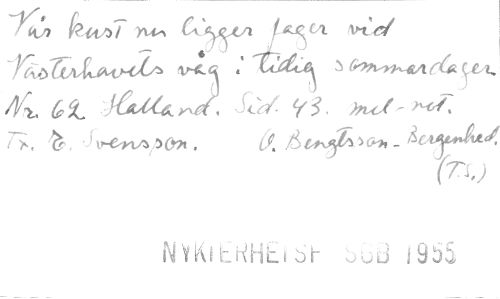 Vår kust nu ligger fager vid
Västerhavets våg i tidig sommardager
Nr. 62 Halland. Sid. 43. mel-not.
Tx. E. Svensson. O. Bengtsson-Bergenhed.
(T.S.)
NYKTERHETSF SGB 1955